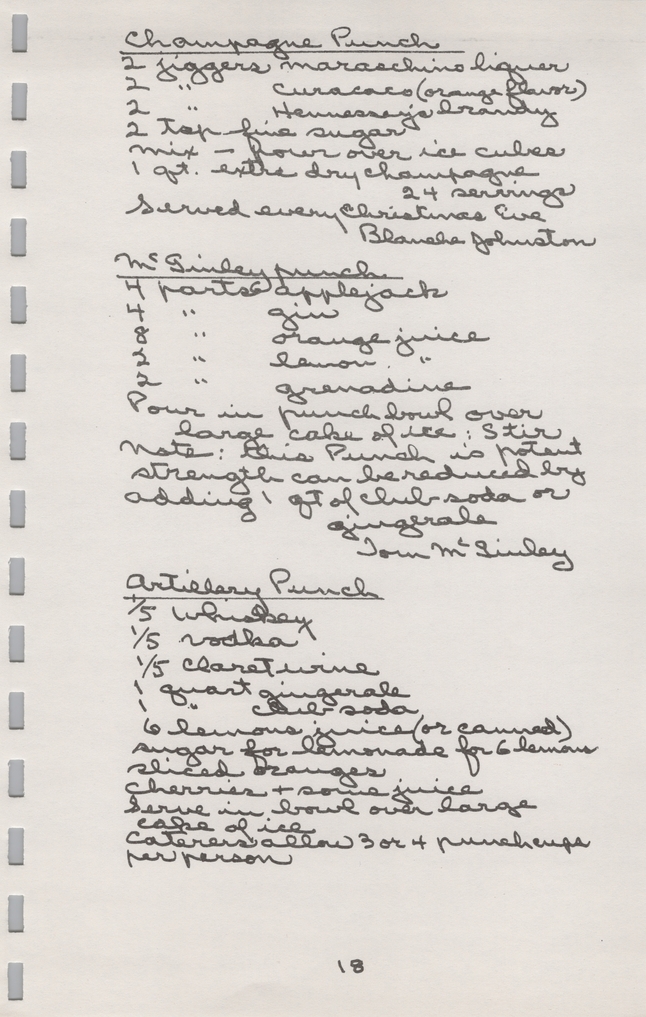 Champagne Punch
2 jiggers maraschino liquer
2 " Curacaco (orange flavor)
2 " Hennessey's brandy
2 tsp fine sugar
mix - pour over ice cubes
1 qt. extra dry champagne
24 servings
Served every Christmas Eve
Blanche Johnston
Mc Ginley punch
4 parts applejack
4 " gin
8 " orange juice
2 " lemon "
2 " grenadine
Pour in punch bowl over
large cake of ice: Stir
Note: this Punch is potent
strength can be reduced by
adding 1 qt of club soda or
gingerale
Tom Mc Ginley
Artillery Punch
1/5 whiskey
1/5 vodka
1/5 claret wine
1 quart gingerale
1 " club soda
6 lemons juice (or canned)
sugar for lemonade for 6 lemons
sliced oranges
cherries + some juice
Serve in bowl over large
cake of ice
Caterers allow 3 or 4 punch cups
per person
18